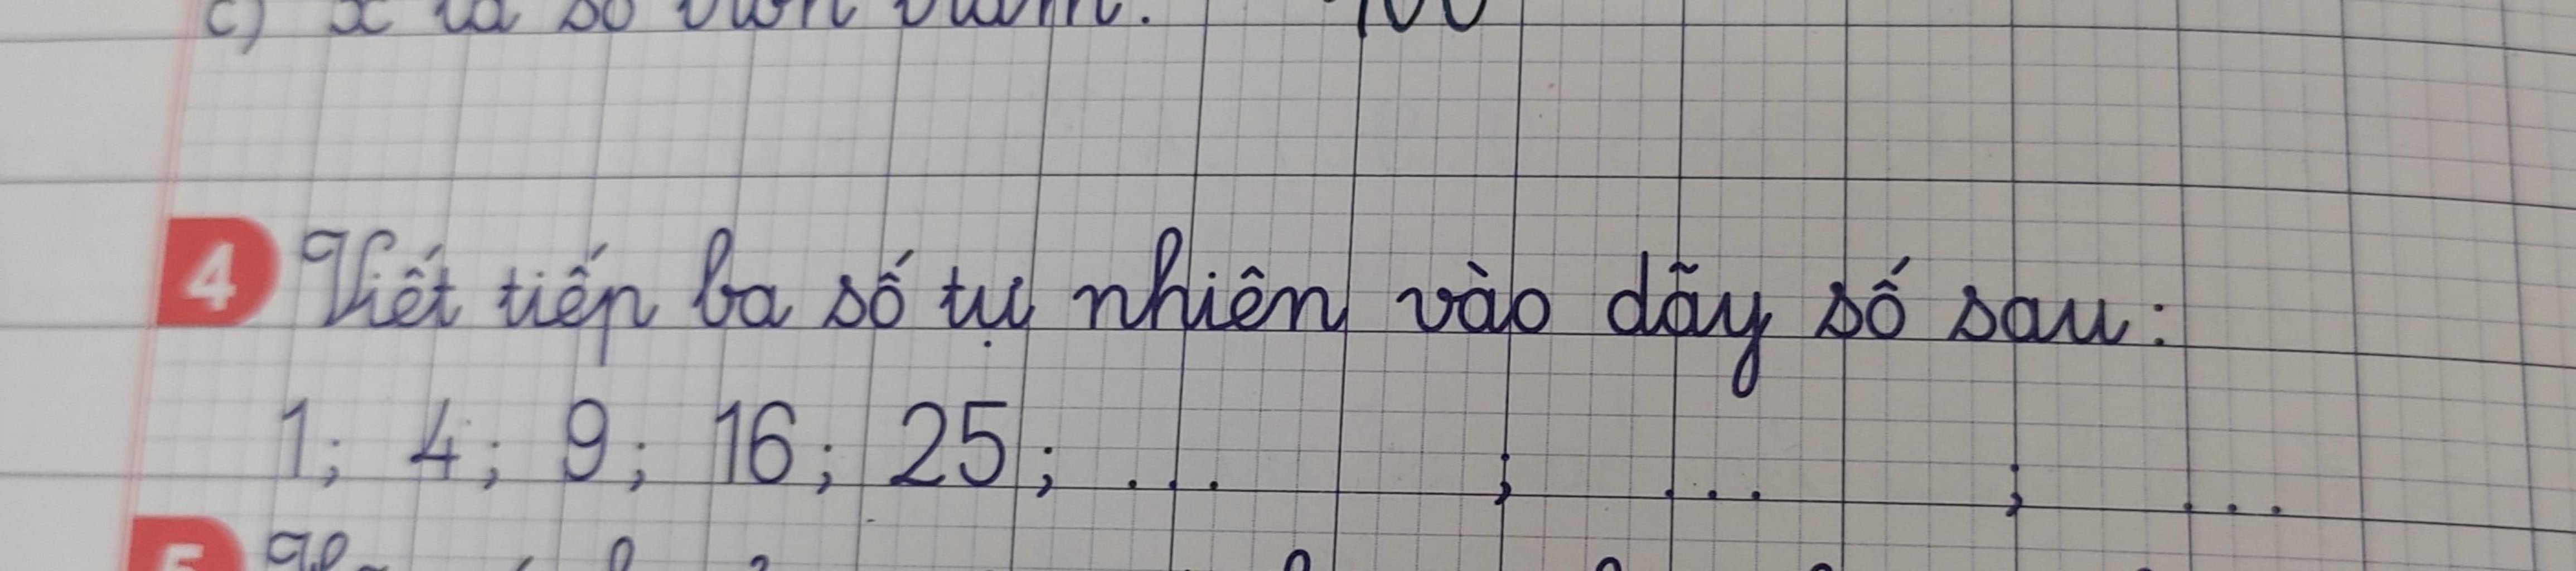 c) x là số tròn trăm. 400
4 Viết tiếp ba số tự nhiên vào dãy số sau:
1; 4; 9; 16; 25; ... ; ... ; ...
5